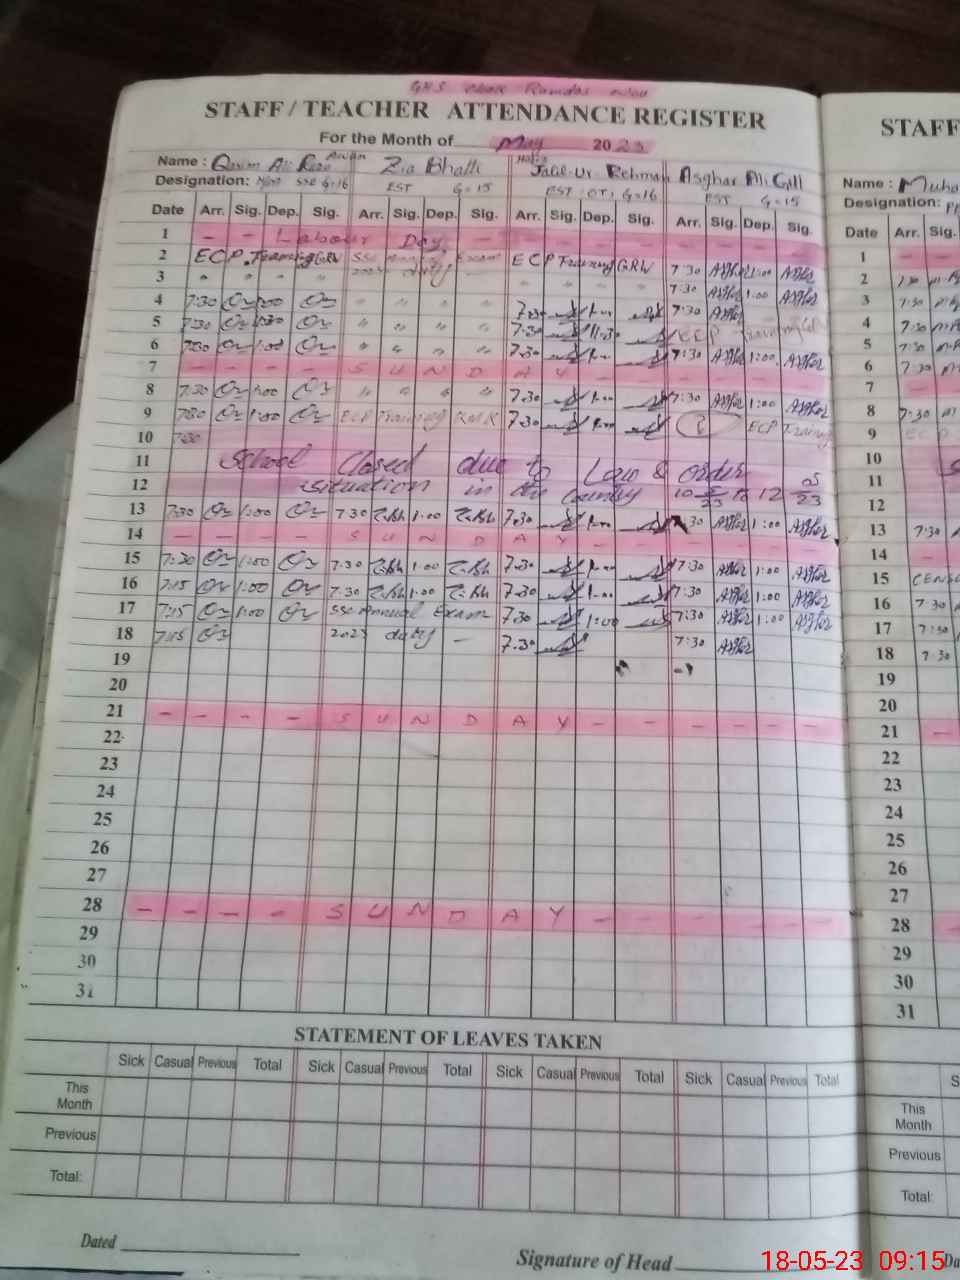 GHS
STAFF / TEACHER ATTENDANCE REGISTER
For the Month of May 2023
Name : Qasim Ali Raza Zia Bhatti Hafiz Jalil-Ur-Rehman Asghar Ali Gill
Designation: SSE G=16 EST G=15 EST G=16 EST G=15
Date Arr. Sig. Dep. Sig. Arr. Sig. Dep. Sig. Arr. Sig. Dep. Sig. Arr. Sig. Dep. Sig.
1 - - Labour Day - - - - - -
2 ECP Training GRW SSC Annual Exam ECP Training GRW 7:30 Asghar 1:00 Asghar
3 " " " " 2023 duty - " " " " 7:30 Asghar 1:00 Asghar
4 7:30 1:00 " " " " 7:30 1:00 7:30 Asghar
5 7:30 " " " " 7:30 11:30 ECP Training
6 7:30 1:00 " " " " 7:30 1:00 7:30 Asghar 1:00 Asghar
7 - - - - S U N D A Y - - - - - -
8 7:30 1:00 " " " " 7:30 1:00 7:30 Asghar 1:00 Asghar
9 7:30 1:00 ECP Training 7:30 1:00 ECP Training
10 7:30
11 School Closed due to Law & order
12 situation in the Country 10 5/23 to 12 05/23
13 7:30 1:00 7:30 Z.Bh 1:00 Z.Bh 7:30 1:00 7:30 Asghar 1:00 Asghar
14 - - - - S U N D A Y - - - - - -
15 7:30 1:00 7:30 Z.Bh 1:00 Z.Bh 7:30 1:00 7:30 Asghar 1:00 Asghar
16 7:15 1:00 7:30 Z.Bh 1:00 Z.Bh 7:30 1:00 7:30 Asghar 1:00 Asghar
17 7:15 1:00 SSC Annual Exam 7:30 1:00 7:30 Asghar 1:00 Asghar
18 7:15 2023 duty - 7:30 7:30 Asghar
19
20
21 - - - - S U N D A Y - - - - - -
22
23
24
25
26
27
28 - - - - S U N D A Y - - - - - -
29
30
31
STATEMENT OF LEAVES TAKEN
Sick Casual Previous Total Sick Casual Previous Total Sick Casual Previous Total Sick Casual Previous Total
This Month
Previous
Total:
Dated
Signature of Head
STAFF
Name : Muha
Designation:
Date Arr. Sig.
1 - -
2 7:30
3 7:30
4 7:30
5 7:30
6 7:30
7 -
8 7:30
9 EC
10
11
12
13 7:30
14 -
15 CENS
16 7:30
17 7:30
18 7:30
19
20
21 -
22
23
24
25
26
27
28 -
29
30
31
S
This Month
Previous
Total:
Da
18-05-23 09:15